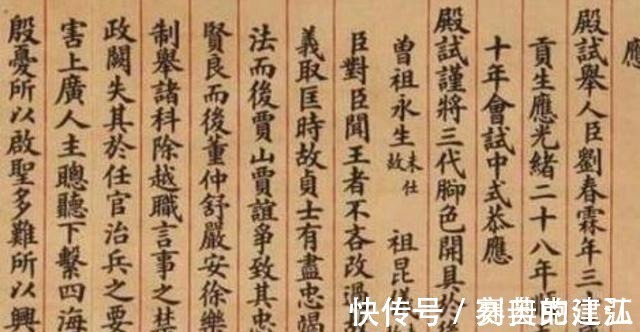 應
殿試舉人臣劉春霖年三十
貢生應光緒二十八年
十年會試中式恭應
殿試謹將三代腳色開具
曾祖永生未仕故 祖昆
臣對臣聞王者不吝改過
義取匡時故貞士有盡忠竭
法而後賈山賈誼爭致其忠
賢良而後董仲舒嚴安徐樂
制舉諸科除越職言事之禁
政闕失其於任官治兵之要
害上廣人主聰聽下繫四海
殷憂所以啟聖多難所以興
快传号/